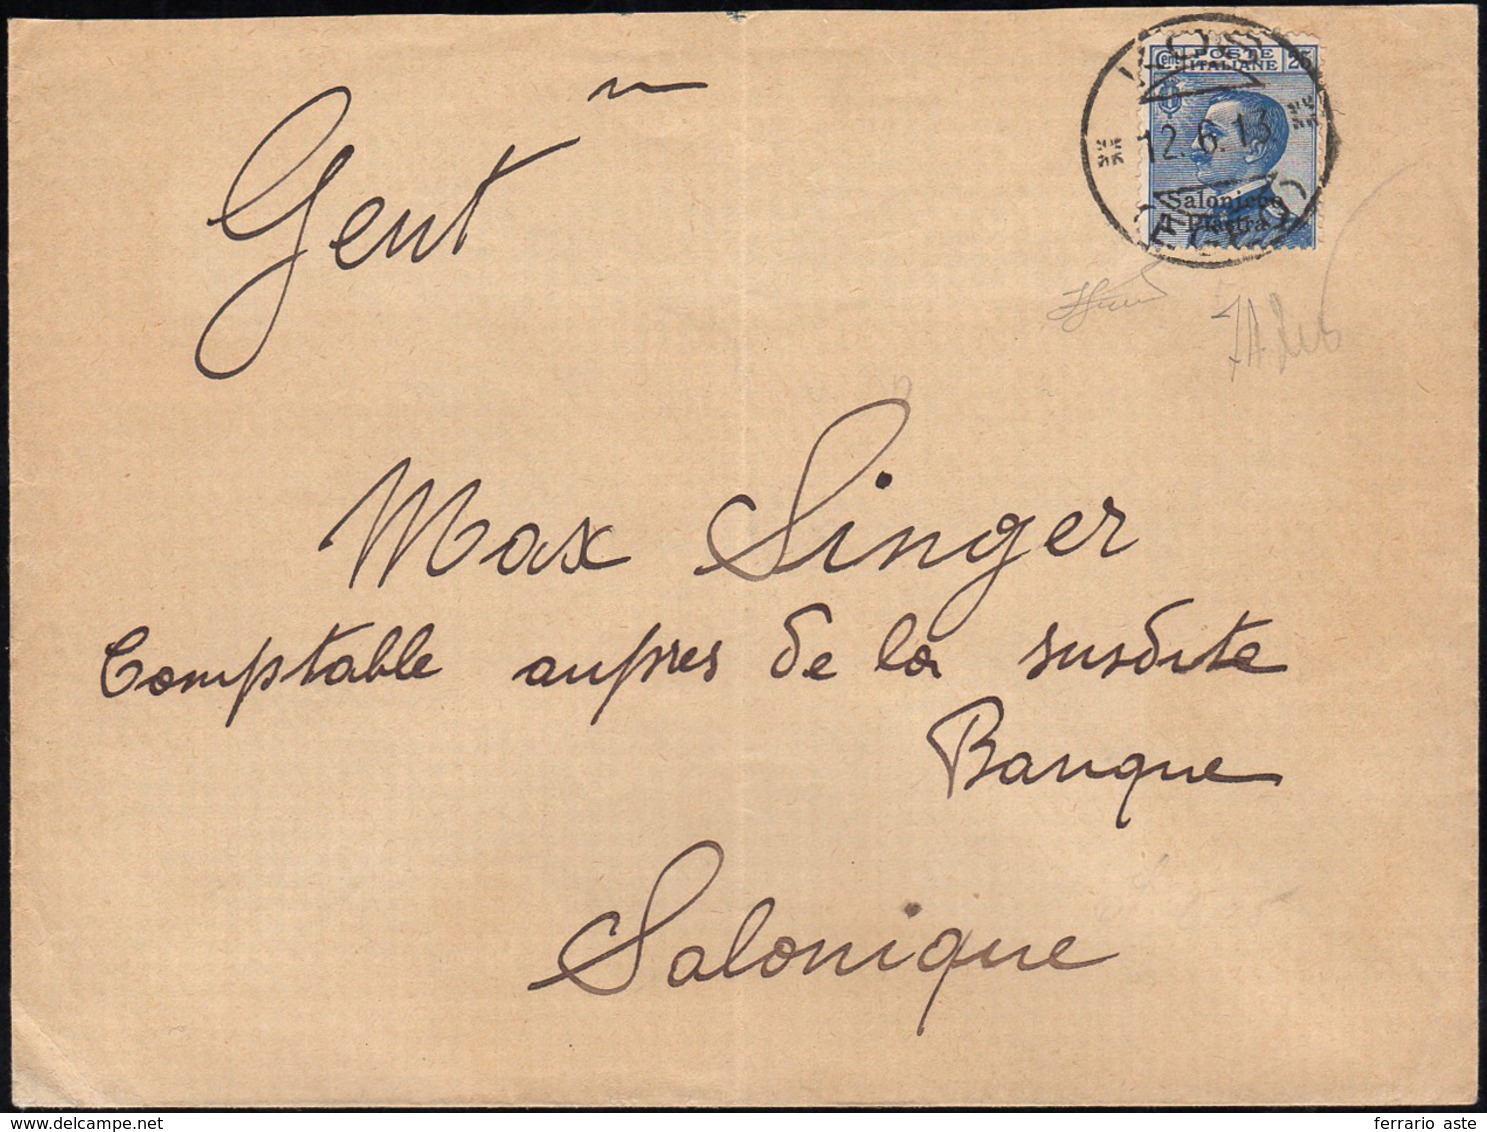 Cent POSTE ITALIANE 25
KOS
12.6.13
EGEO
Salonicco
1 Piastra
Gent
Max Singer
Comptable aupres de la susdite
Banque
Salonique
delcampe.net
ferrario aste